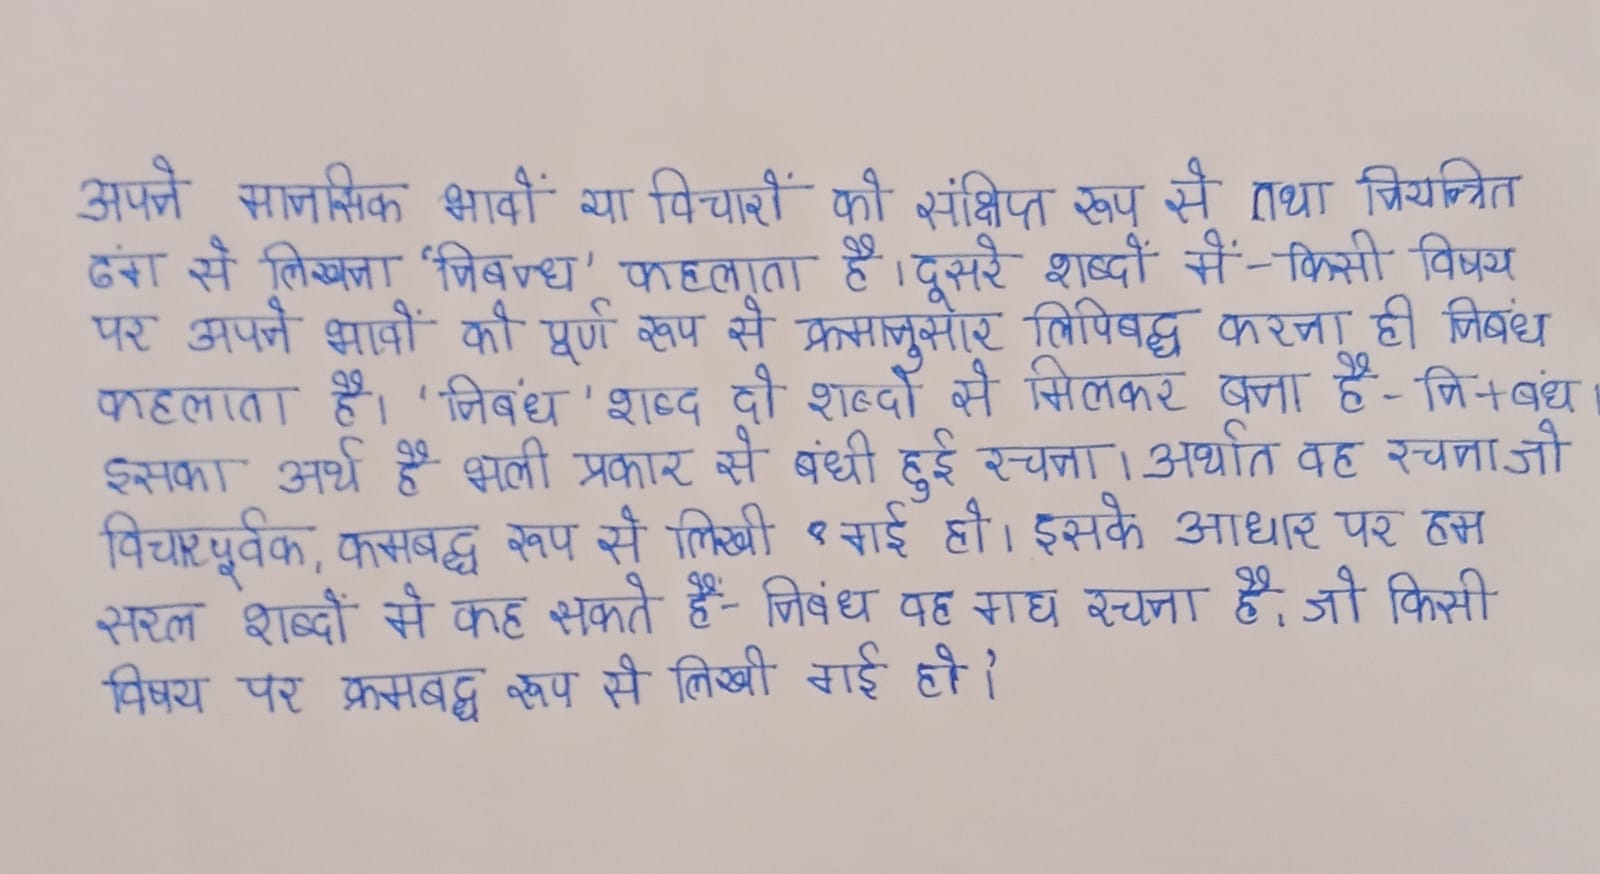 अपने मानसिक भावों या विचारों को संक्षिप्त रूप से तथा नियन्त्रित
ढंग से लिखना 'निबन्ध' कहलाता है। दूसरे शब्दों में - किसी विषय
पर अपने भावों को पूर्ण रूप से क्रमानुसार लिपिबद्ध करना ही निबंध
कहलाता है। 'निबंध' शब्द दो शब्दों से मिलकर बना है - नि+बंध।
इसका अर्थ है भली प्रकार से बंधी हुई रचना। अर्थात वह रचना जो
विचारपूर्वक, कमबद्ध रूप से लिखी गई हो। इसके आधार पर हम
सरल शब्दों मे कह सकते हैं - निबंध वह गद्य रचना है, जो किसी
विषय पर क्रमबद्ध रूप से लिखी गई हो।